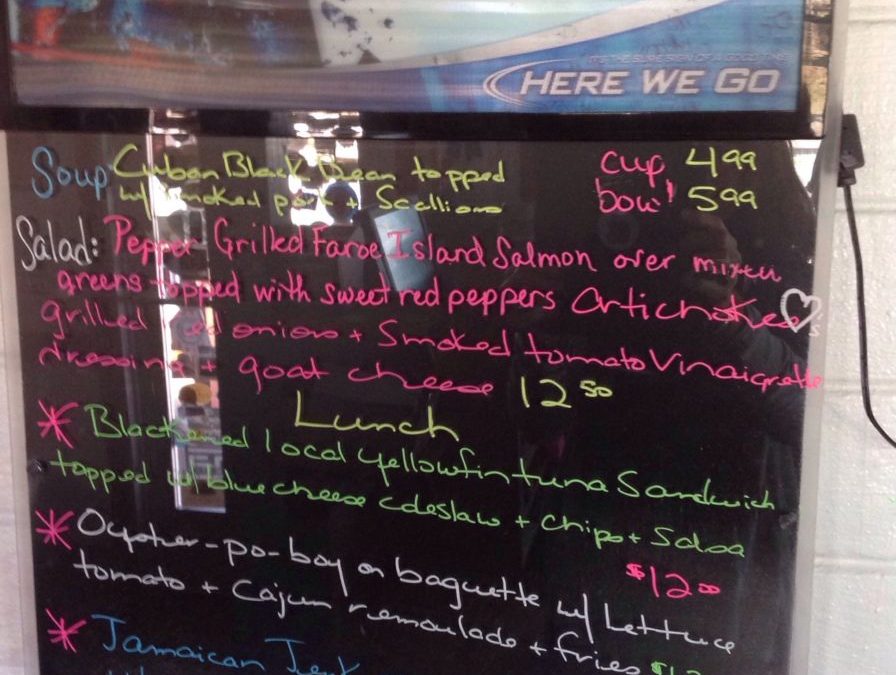 HERE WE GO
Soup: Cuban Black Bean topped cup 4 99
w/ smoked pork + Scallions bowl 5 99
Salad: Pepper Grilled Faroe Island Salmon over mixed
greens topped with sweet red peppers Artichokes
grilled red onions + Smoked tomato Vinaigrette
dressing + goat cheese 12 50
Lunch
* Blackened local yellowfin tuna Sandwich
topped w/ blue cheese coleslaw + chips + Salsa
$12 00
* Oyster-po-boy on baguette w/ Lettuce
tomato + Cajun remoulade + fries
* Jamaican Jerk